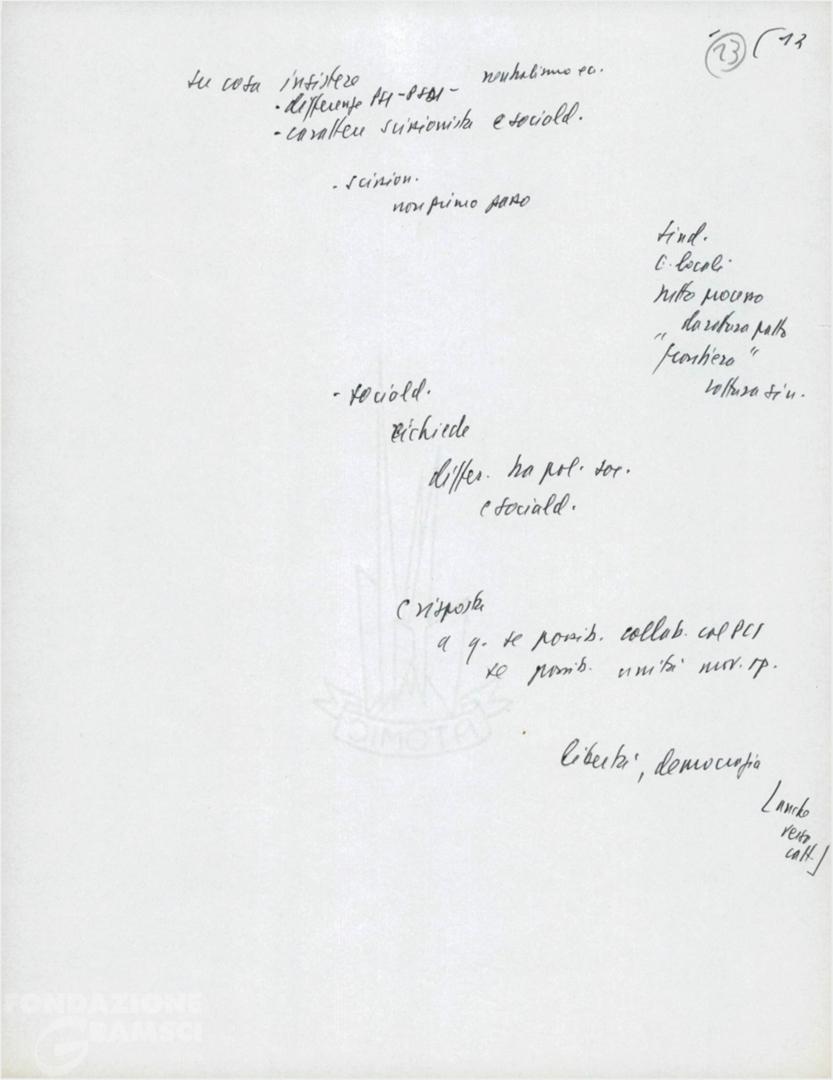 23 13
su cosa insistere neutralismo ec.
- differenze PSI-PSDI-
- carattere scissionista e sociald.
- scission.
non primo passo
sind.
C. locali
tutto processo
" la rottura patto
frontiera "
rottura sin.
- sociald.
richiede
differ. tra pol. soc.
e sociald.
C risposta
a q. se possib. collab. col PCI
se possib. unità mov. op.
libertà, democrazia
[anche
verso
catt.]
ATOMIC
FONDAZIONE
GRAMSCI